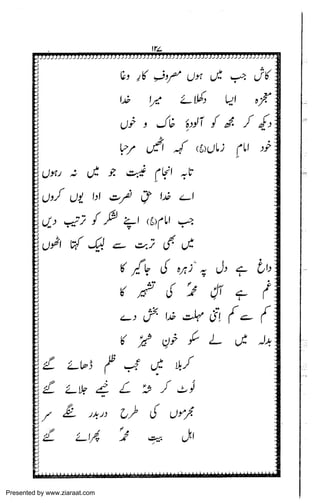 ۱۴۷
کاش جب میں ہوں مصروفِ کارِ وغا
معجزہ ایسا دکھلائے میرا خدا
دیکھ کر مجھ کو آلودۂ خاک و خوں
خود امامِ زماں(ع) کہہ اٹھیں مرحبا
تابہ انجامِ غیبت جو میں نہ رہوں
اے خدا حقِ نصرت ادا یوں کروں
جب امام(ع) اپنے لشکر کو ترتیب دیں
میں بھی تربت سے لبیک کہتا اٹھوں
داغ ہے دل پہ زہرہ کی جاگیر کا
غم ہے آلِ محمدؐ کی تشہیر کا
کم سے کم اتنی مہلت خدا بخش دے
بدلہ میں لے سکو خونِ شبیرؑ کا
کربلا میں عجب ظلم ڈھائے گئے
لوٹ کر شہؑ کے خیمے جلائے گئے
مجرموں کی طرح دربدر ننگے سر
اہل بیتِ محمدؐ پھرائے گئے
Presented by www.ziaraat.com